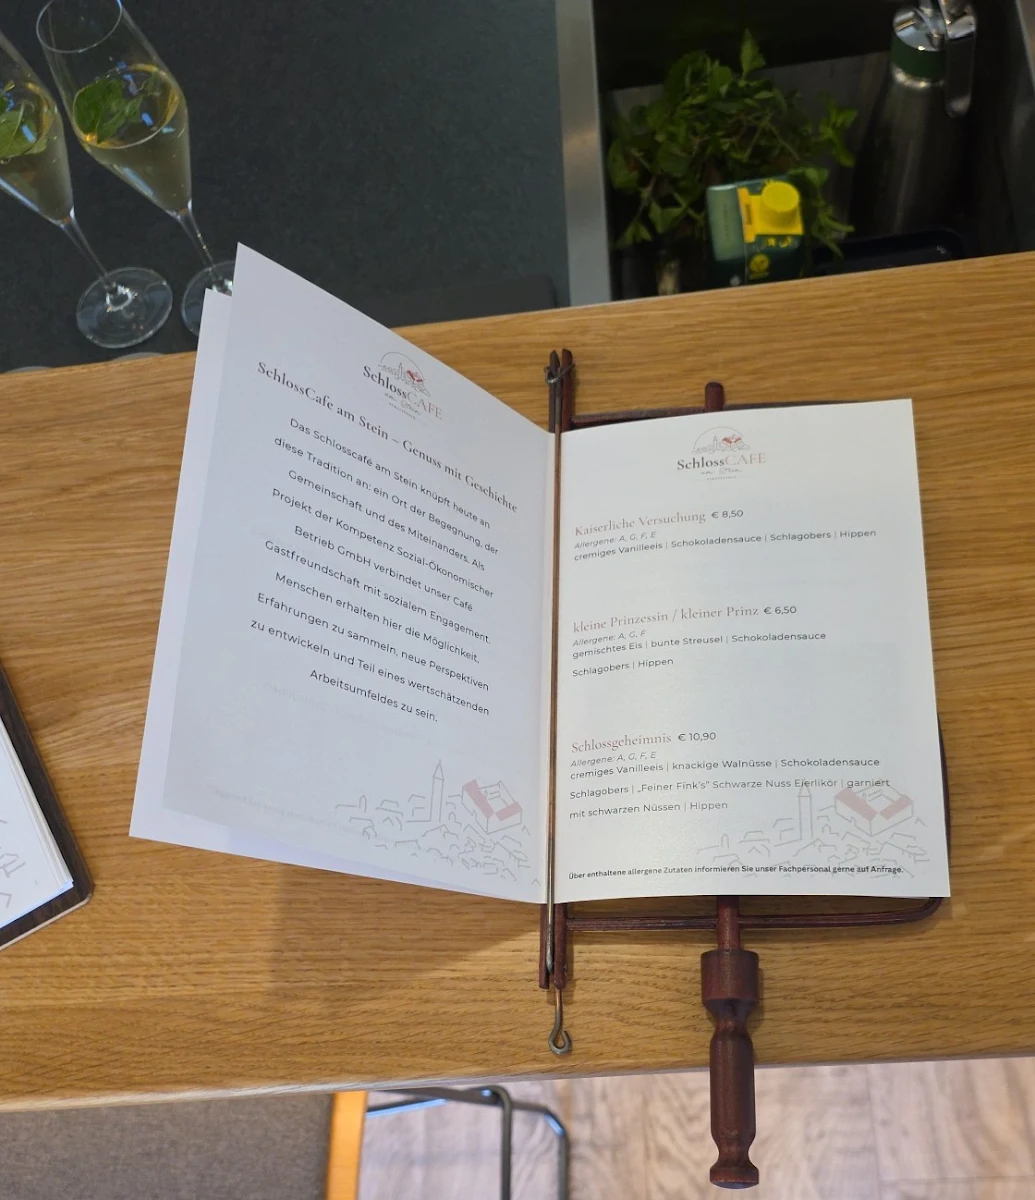 SchlossCAFE
am Stein
SchlossCafe am Stein – Genuss mit Geschichte
Das Schlosscafé am Stein knüpft heute an
diese Tradition an: ein Ort der Begegnung, der
Gemeinschaft und des Miteinanders. Als
Projekt der Kompetenz Sozial-Ökonomischer
Betrieb GmbH verbindet unser Café
Gastfreundschaft mit sozialem Engagement.
Menschen erhalten hier die Möglichkeit,
Erfahrungen zu sammeln, neue Perspektiven
zu entwickeln und Teil eines wertschätzenden
Arbeitsumfeldes zu sein.
SchlossCAFE
am Stein
Kaiserliche Versuchung € 8,50
Allergene: A, G, F, E
cremiges Vanilleeis | Schokoladensauce | Schlagobers | Hippen
kleine Prinzessin / kleiner Prinz € 6,50
Allergene: A, G, F
gemischtes Eis | bunte Streusel | Schokoladensauce
Schlagobers | Hippen
Schlossgeheimnis € 10,90
Allergene: A, G, F, E
cremiges Vanilleeis | knackige Walnüsse | Schokoladensauce
Schlagobers | „Feiner Fink's" Schwarze Nuss Eierlikör | garniert
mit schwarzen Nüssen | Hippen
Über enthaltene allergene Zutaten informieren Sie unser Fachpersonal gerne auf Anfrage.